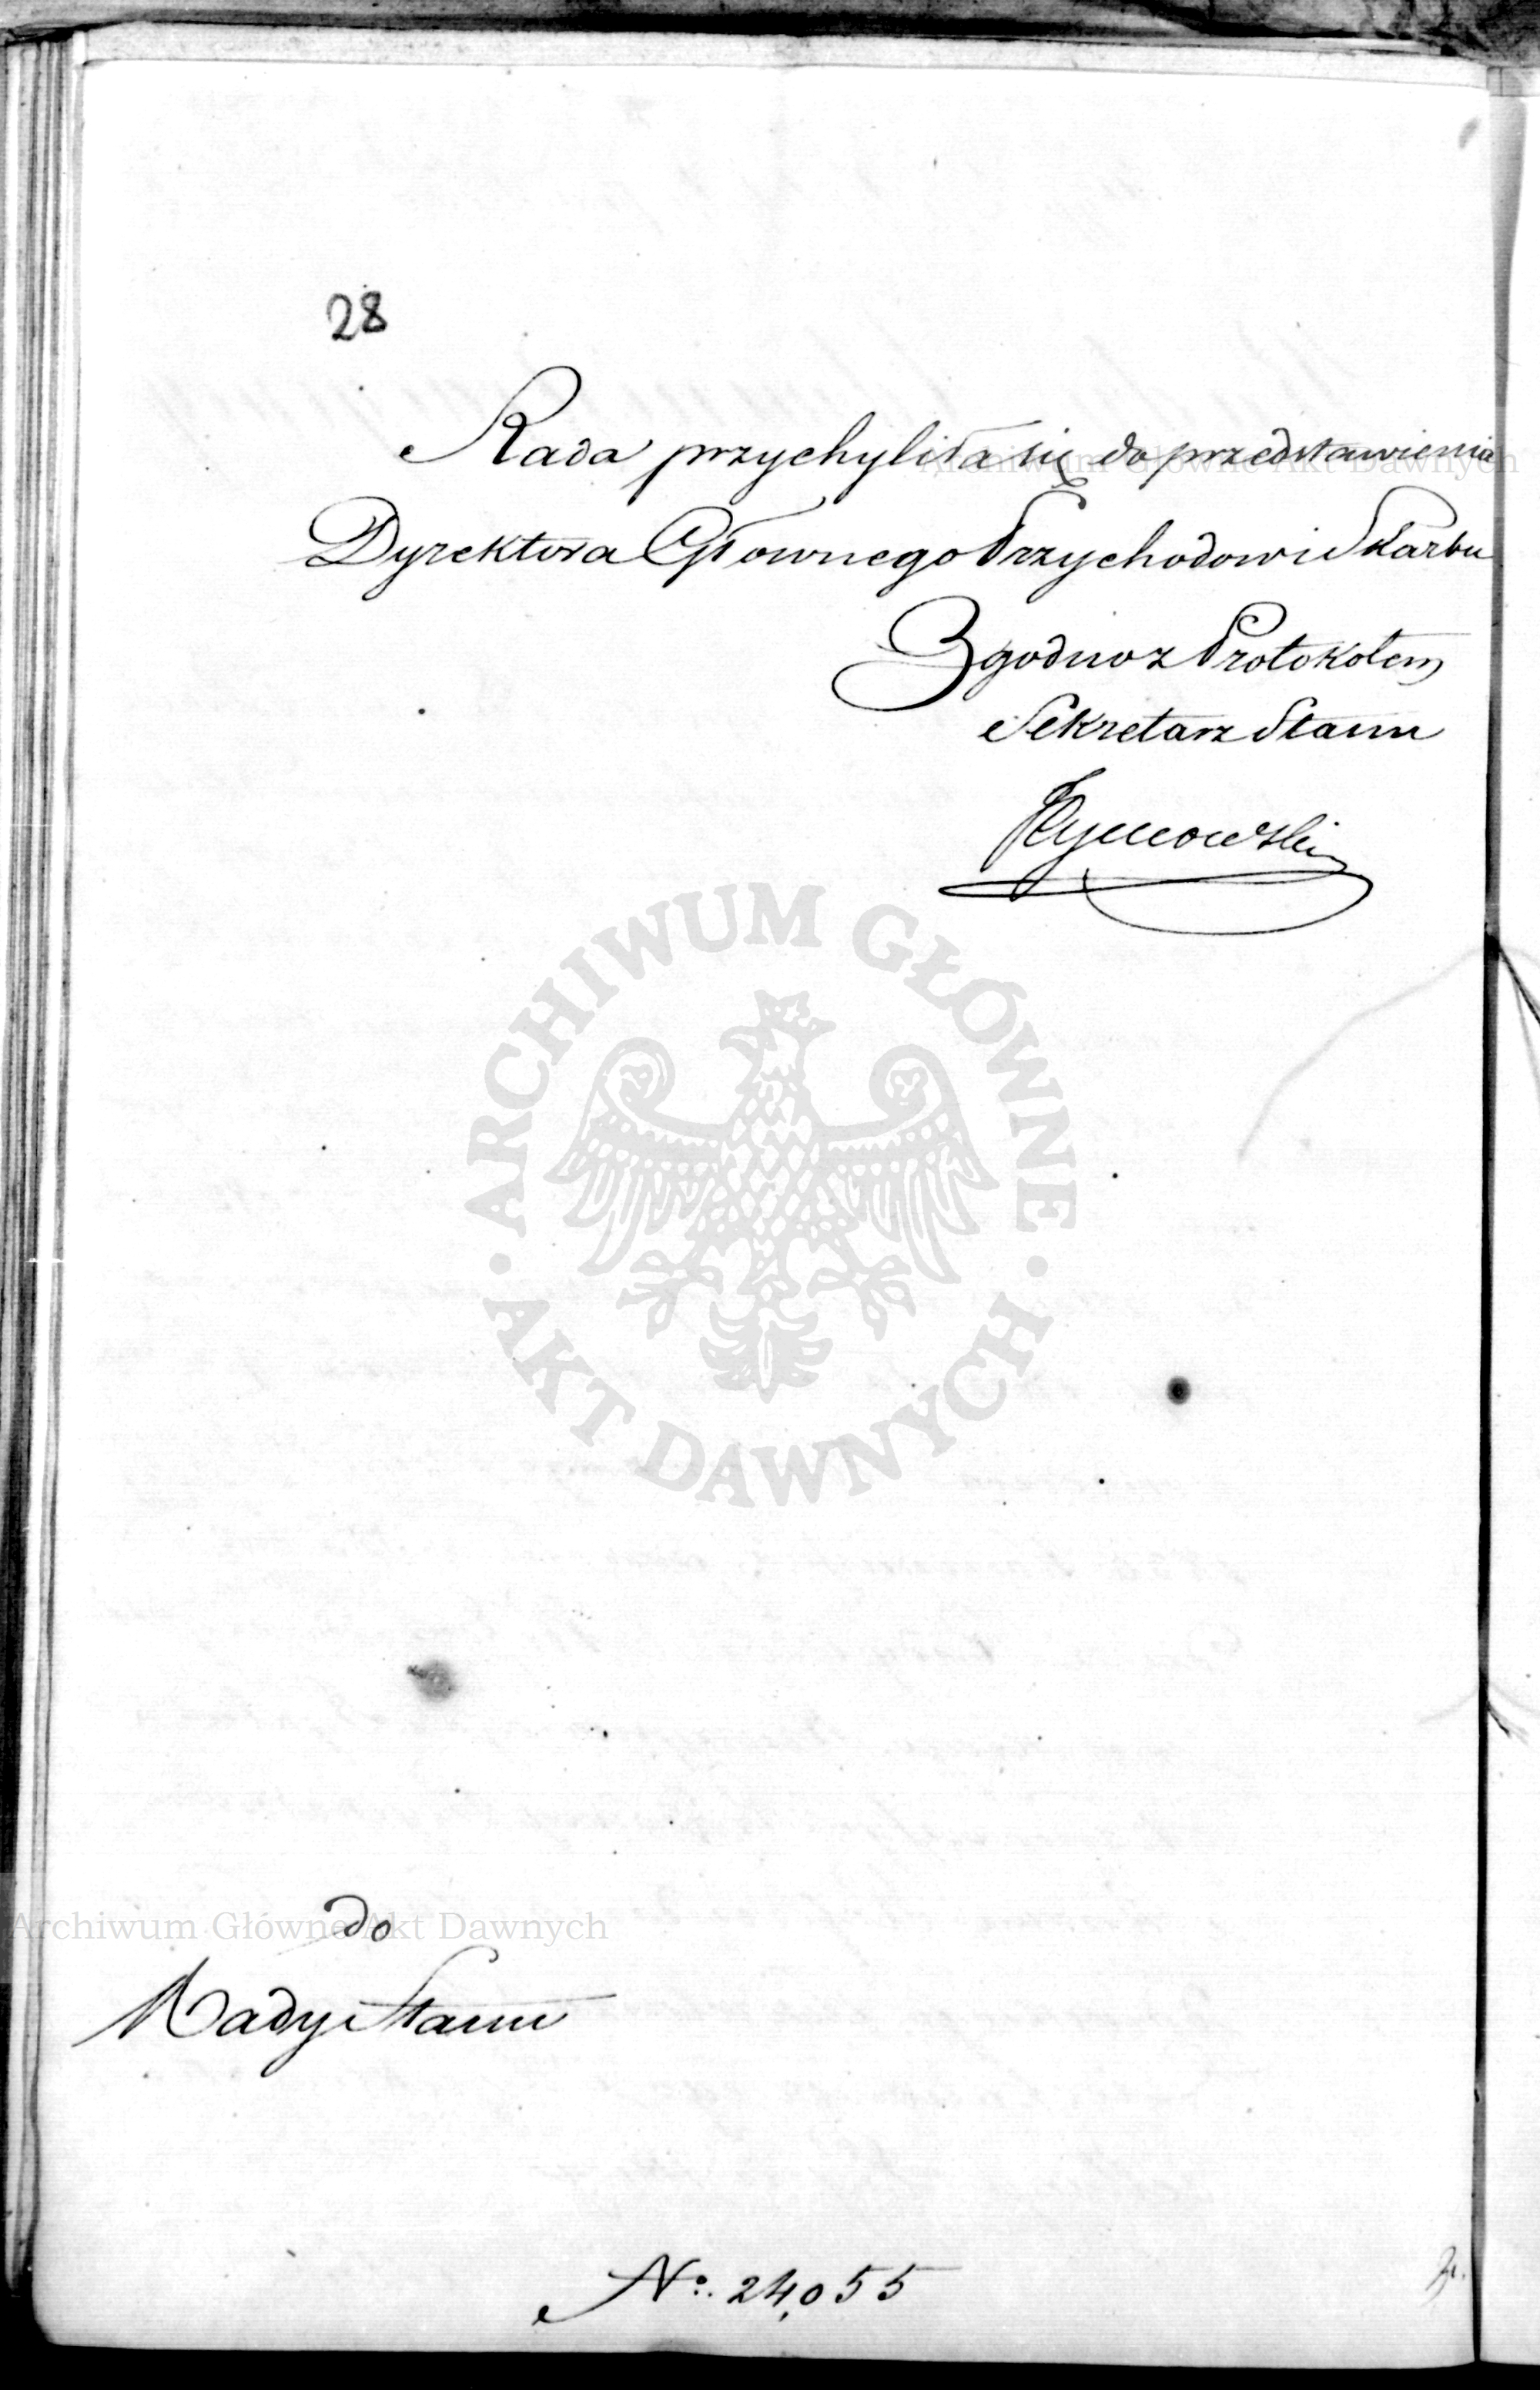 28
Rada przychyliła się do przedstawienia
Dyrektora Głownego Przychodow i Skarbu
Zgodno z Protokołem
Sekretarz Stanu
Rymowski
ARCHIWUM GŁÓWNE
AKT DAWNYCH
do
Rady Stanu
Archiwum Główne Akt Dawnych
No. 24,055